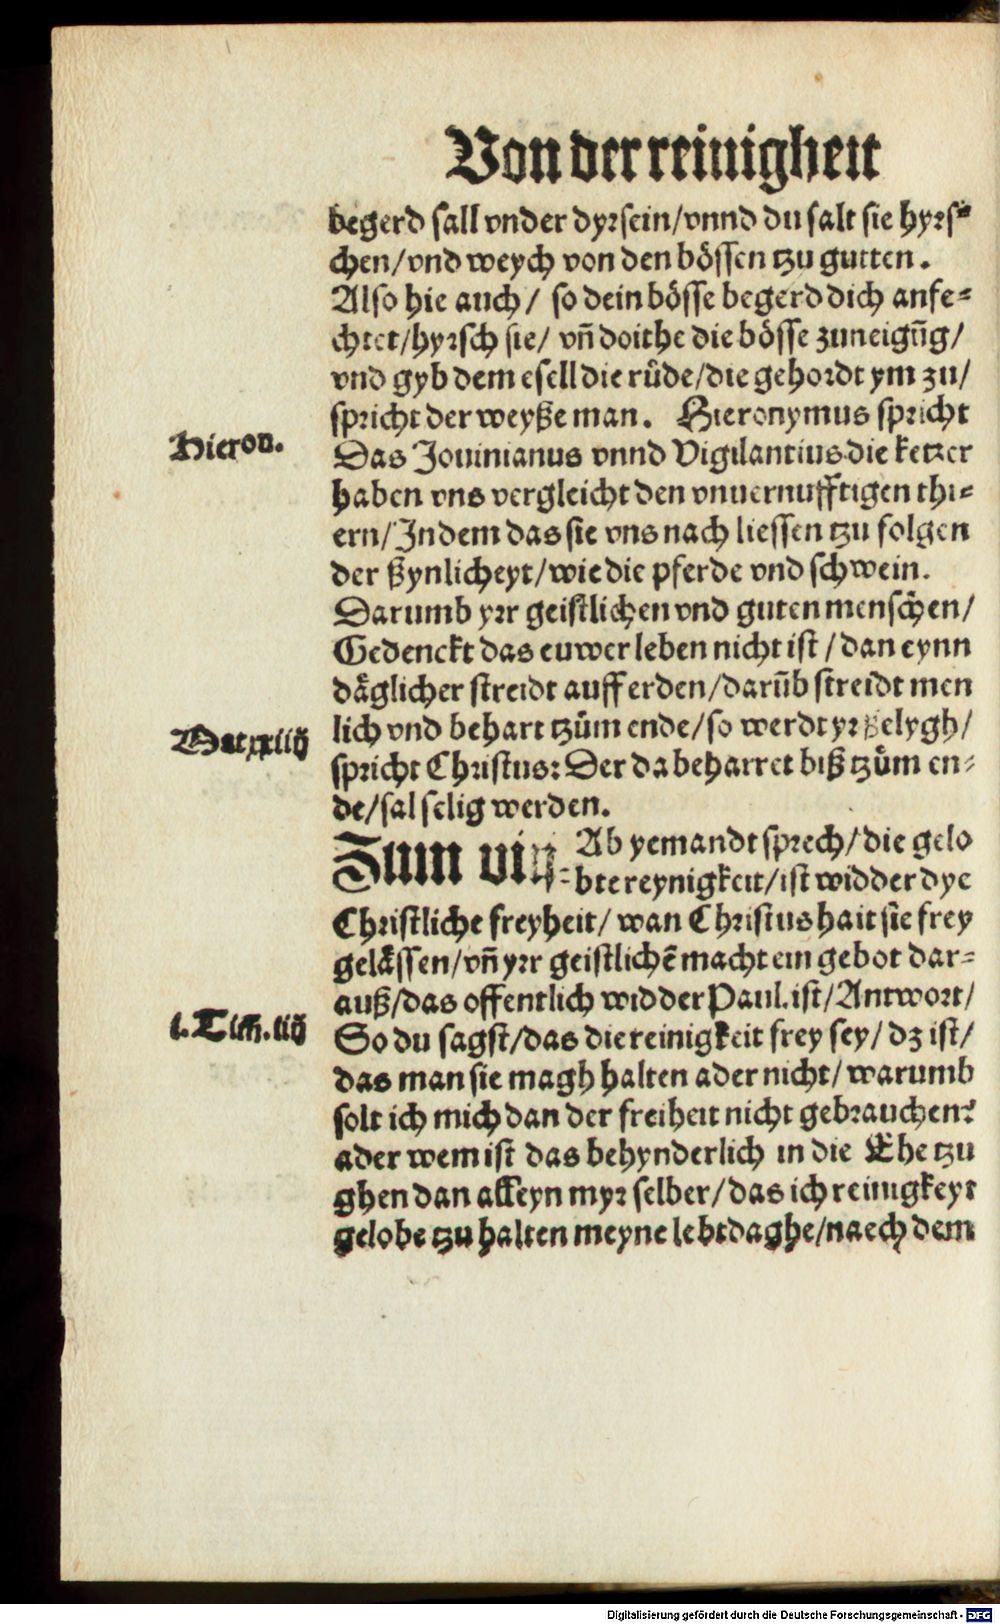 Von der reinigheit
begerd sall vnder dyr sein/vnnd du salt sie hyrs⸗
chen/vnd weych von den bössen tzu gutten.
Also hie auch/ so dein bösse begerd dich anfe⸗
chtet/hyrsch sie/ vn̄ doithe die bösse zuneigūg/
vnd gyb dem esell die růde/die gehordt ym zu/
spricht der weyße man. Hieronymus spricht
Hieron.
Das Jouinianus vnnd Vigilantius die ketzer
haben vns vergleicht den vnuernufftigen thi⸗
ern/Jndem das sie vns nach liessen tzu folgen
der ßynlicheyt/wie die pferde vnd schwein.
Darumb yrr geistlichen vnd guten menschen/
Gedenckt das euwer leben nicht ist/dan eynn
däglicher streidt auff erden/darūb streidt men
lich vnd behart tzům ende/so werdt yr ßelygh/
Mat xxiiij
spricht Christus: Der da beharret biß tzům en⸗
de/sal selig werden.
Zum viij⸗ Ab yemandt sprech/die gelo
bte reynigkeit/ist widder dye
Christliche freyheit/ wan Christus hait sie frey
gelässen/vn̄ yrr geistlichē macht ein gebot dar⸗
auß/das offentlich widder Paul. ist/Antwort/
i. Tim. iiij
So du sagst/das die reinigkeit frey sey/ dz ist/
das man sie magh halten ader nicht/warumb
solt ich mich dan der freiheit nicht gebrauchen?
ader wem ist das behynderlich in die Ehe tzu
ghen dan alleyn myr selber/das ich reinigkeyt
gelobe tzu halten meyne lebtdaghe/naech dem
Digitalisierung gefördert durch die Deutsche Forschungsgemeinschaft - DFG